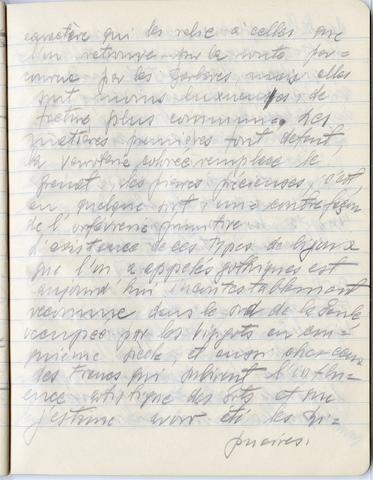 caractère qui les relie à celles que
l'on retrouve sur la route par=
courue par les Barbares, mais elles
sont moins luxueuses, de
facture plus commune. Les
matières premières font defaut,
la verroterie remplace le
grenat, les pierres précieuses, c'est
en quelque sort une contrefaçon
de l'orfèvrerie primitive.
L'existence de ces types de bijoux
que l'on a appelés gothiques est
aujourd'hui incontestablement
reconnue dans le sud de la Gaule
occupée par les Visigots au cin=
quième siècle et aussi chez ceux
des Francs qui subirent l'influ=
ence artistique des Gots et que
j'estime avoir été les Ri=
puaires.